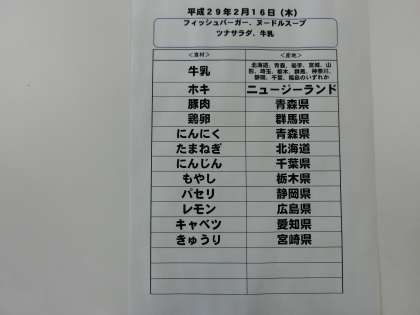 平成29年2月16日（木）
フィッシュバーガー、ヌードルスープ
ツナサラダ、牛乳
＜食材＞ ＜産地＞
牛乳 北海道、青森、岩手、宮城、山
形、埼玉、栃木、群馬、神奈川、
静岡、千葉、福島のいずれか
ホキ ニュージーランド
豚肉 青森県
鶏卵 群馬県
にんにく 青森県
たまねぎ 北海道
にんじん 千葉県
もやし 栃木県
パセリ 静岡県
レモン 広島県
キャベツ 愛知県
きゅうり 宮崎県